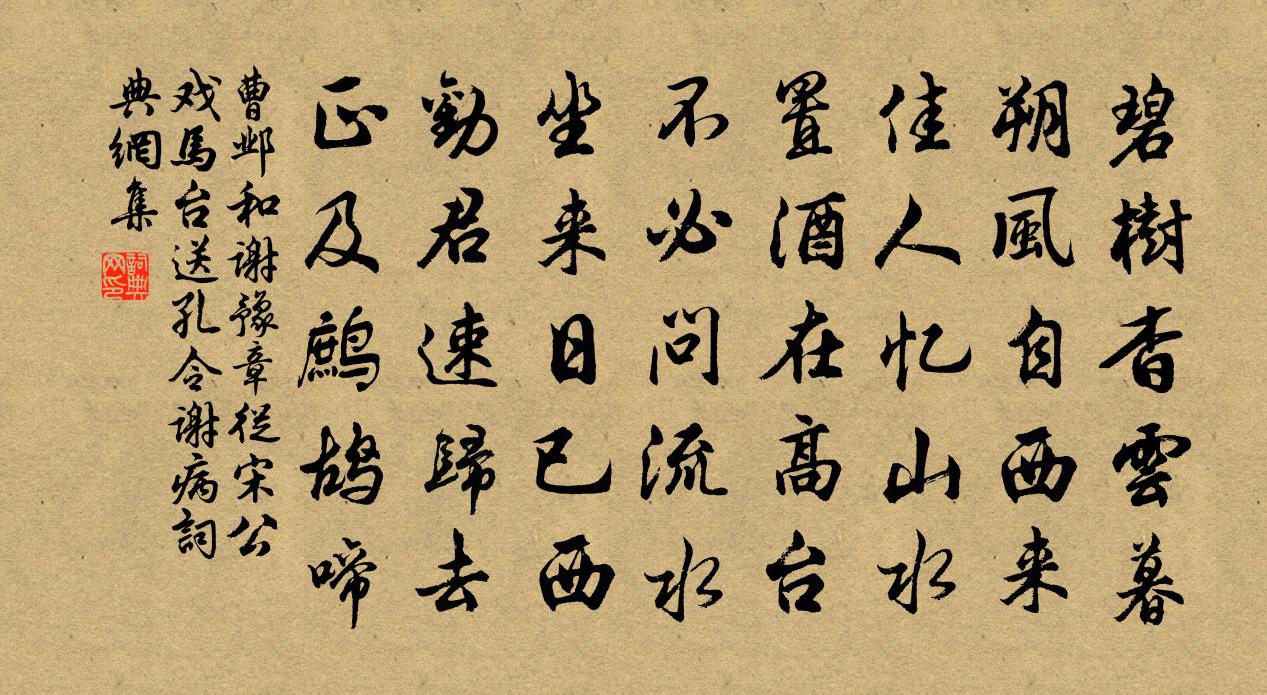 碧樹杳雲暮
朔風自西来
佳人忆山水
置酒在高台
不必问流水
坐来日已西
勸君速歸去
正及鷓鸪啼
曹邺和谢豫章從宋公
戏馬台送孔令谢病詞
典網集
詞典
网印